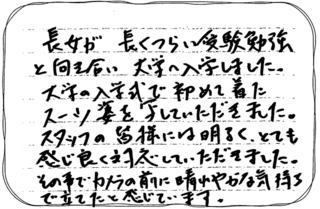 長女が 長くつらい受験勉強
と向き合い 大学へ入学しました。
大学の入学式で初めて着た
スーツ姿を写していただきました。
スタッフの皆様には明るく、とても
感じ良く対応していただきました。
その事でカメラの前に晴れやかな気持ち
で立てたと感じています。